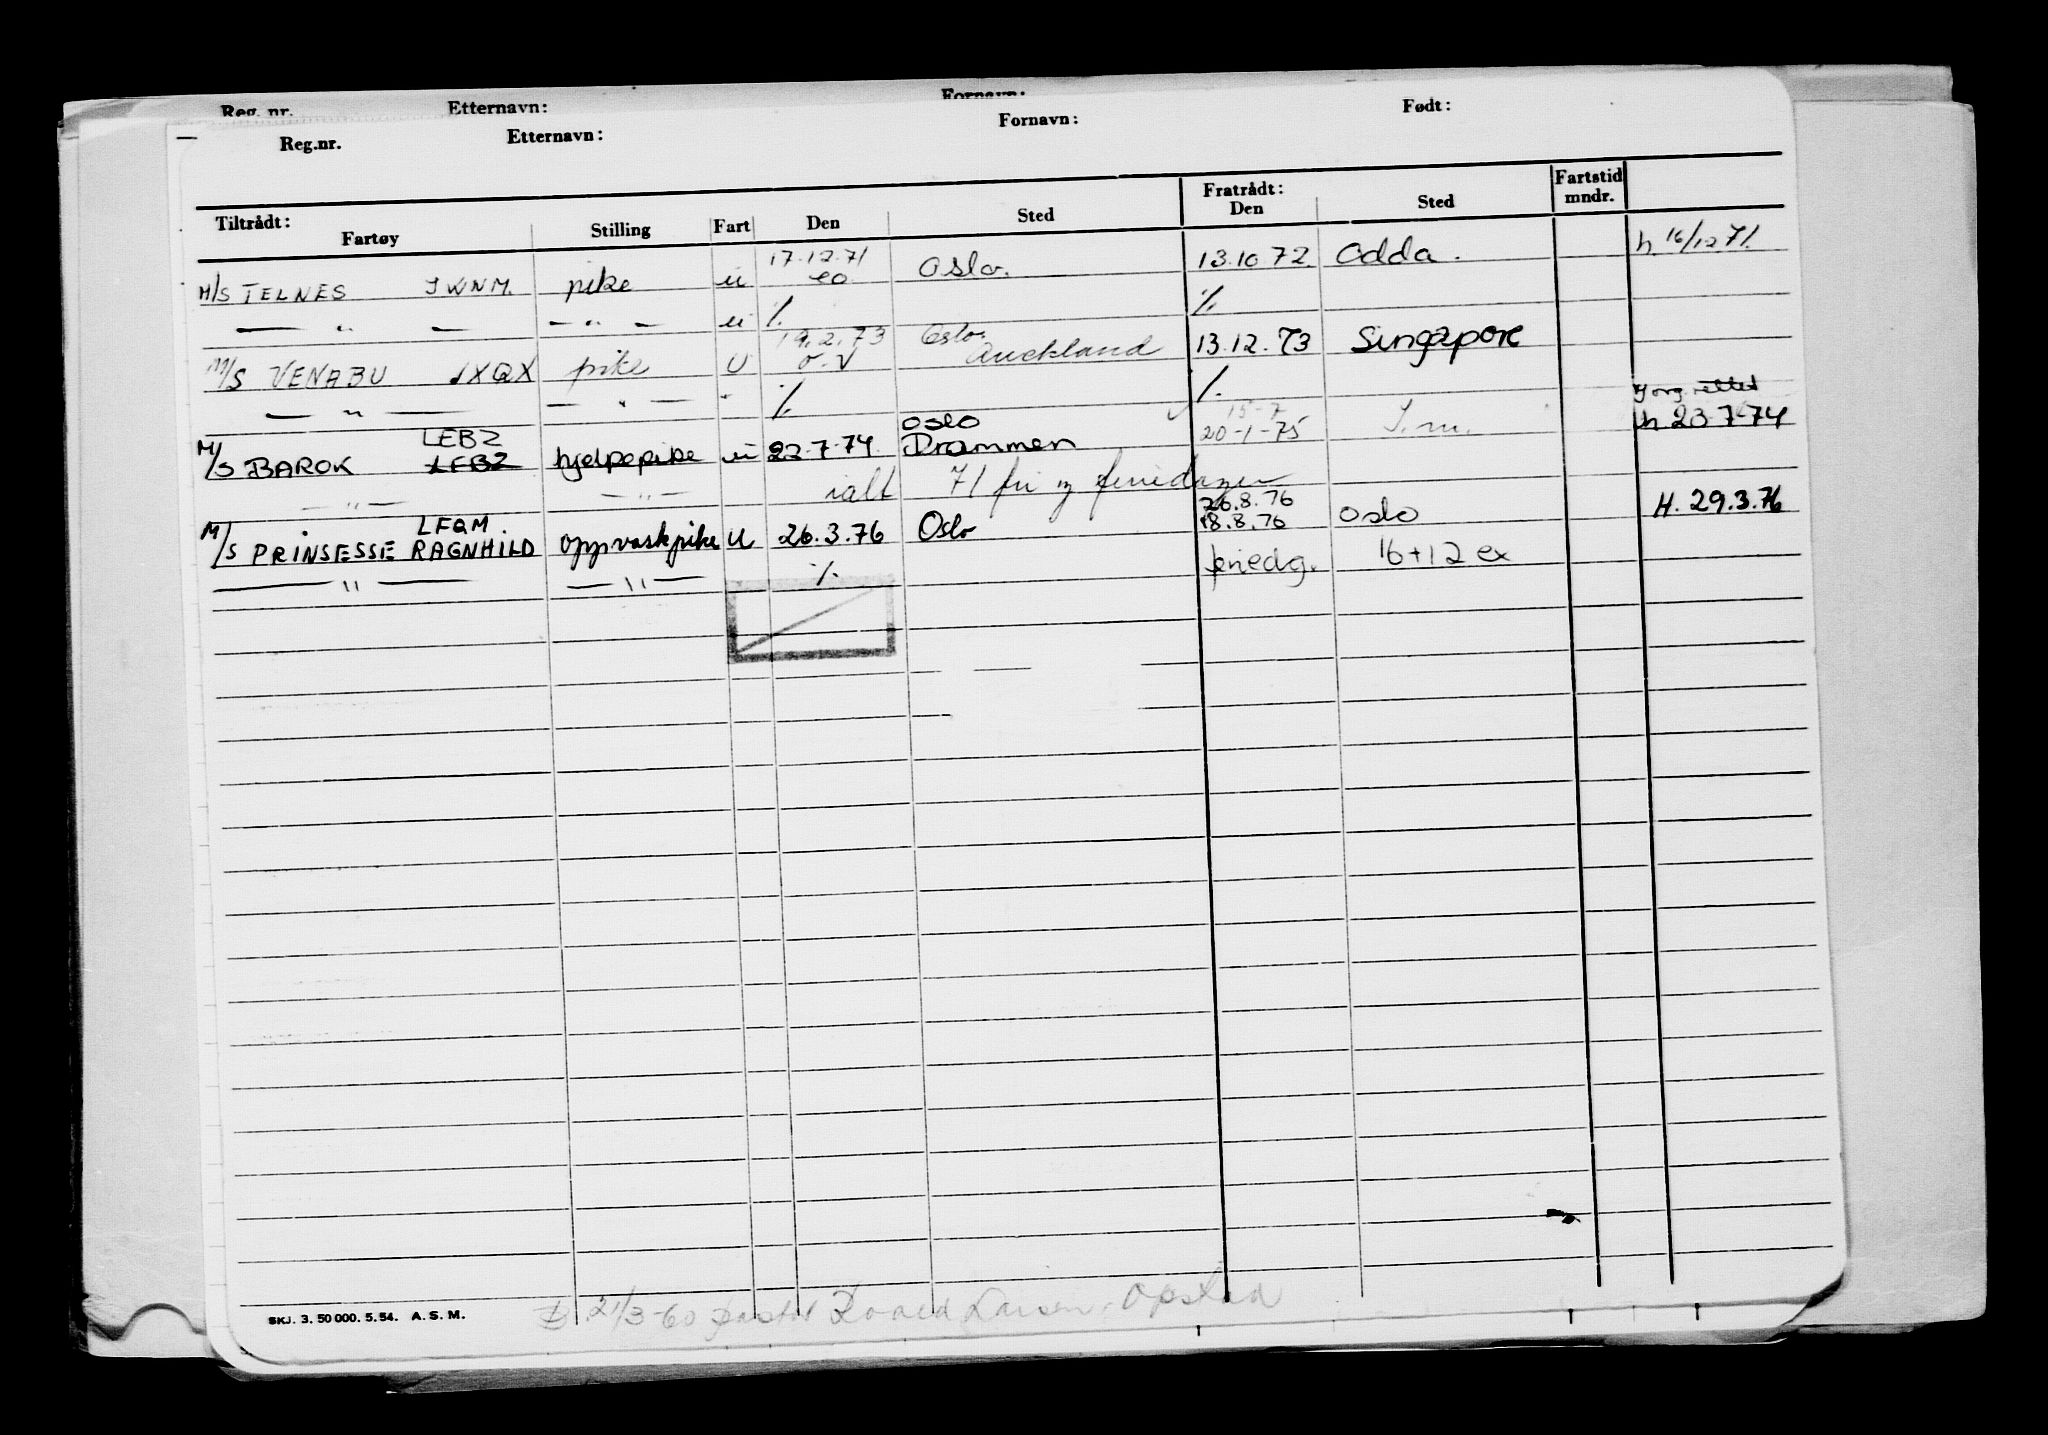 Reg. nr. Etternavn: Fornavn:
Reg.nr. Etternavn: Fornavn: Født:
Tiltrådt: Fartøy Stilling Fart Den Sted Fratrådt: Den Sted Fartstid mndr.
17.12.71
M/S TELNES JWNM. pike u eo Oslo. 13.10.72 Odda. h. 16/12 71.
— " — — " — u % %
19.2.73 Oslo.
M/S VENABU JXQX pike U o.v Auckland 13.12.73 Singapore
— " — — " — " % %
LEBZ oslo 15-7
M/S BAROK LEBZ hjelpepike u 22.7.74. Drammen 20-1-75 h 23.7.74
— " — — " — ialt 71 fri og feriedager
LFQM. 26.8.76
M/S PRINSESSE RAGNHILD oppvaskpike U 26.3.76 Oslo 18.8.76 oslo H. 29.3.76
— " — — " — % feriedg. 16+12 ex
SKJ. 3. 50 000. 5.54. A.S.M. 21/3-60 Larsen, Opstad